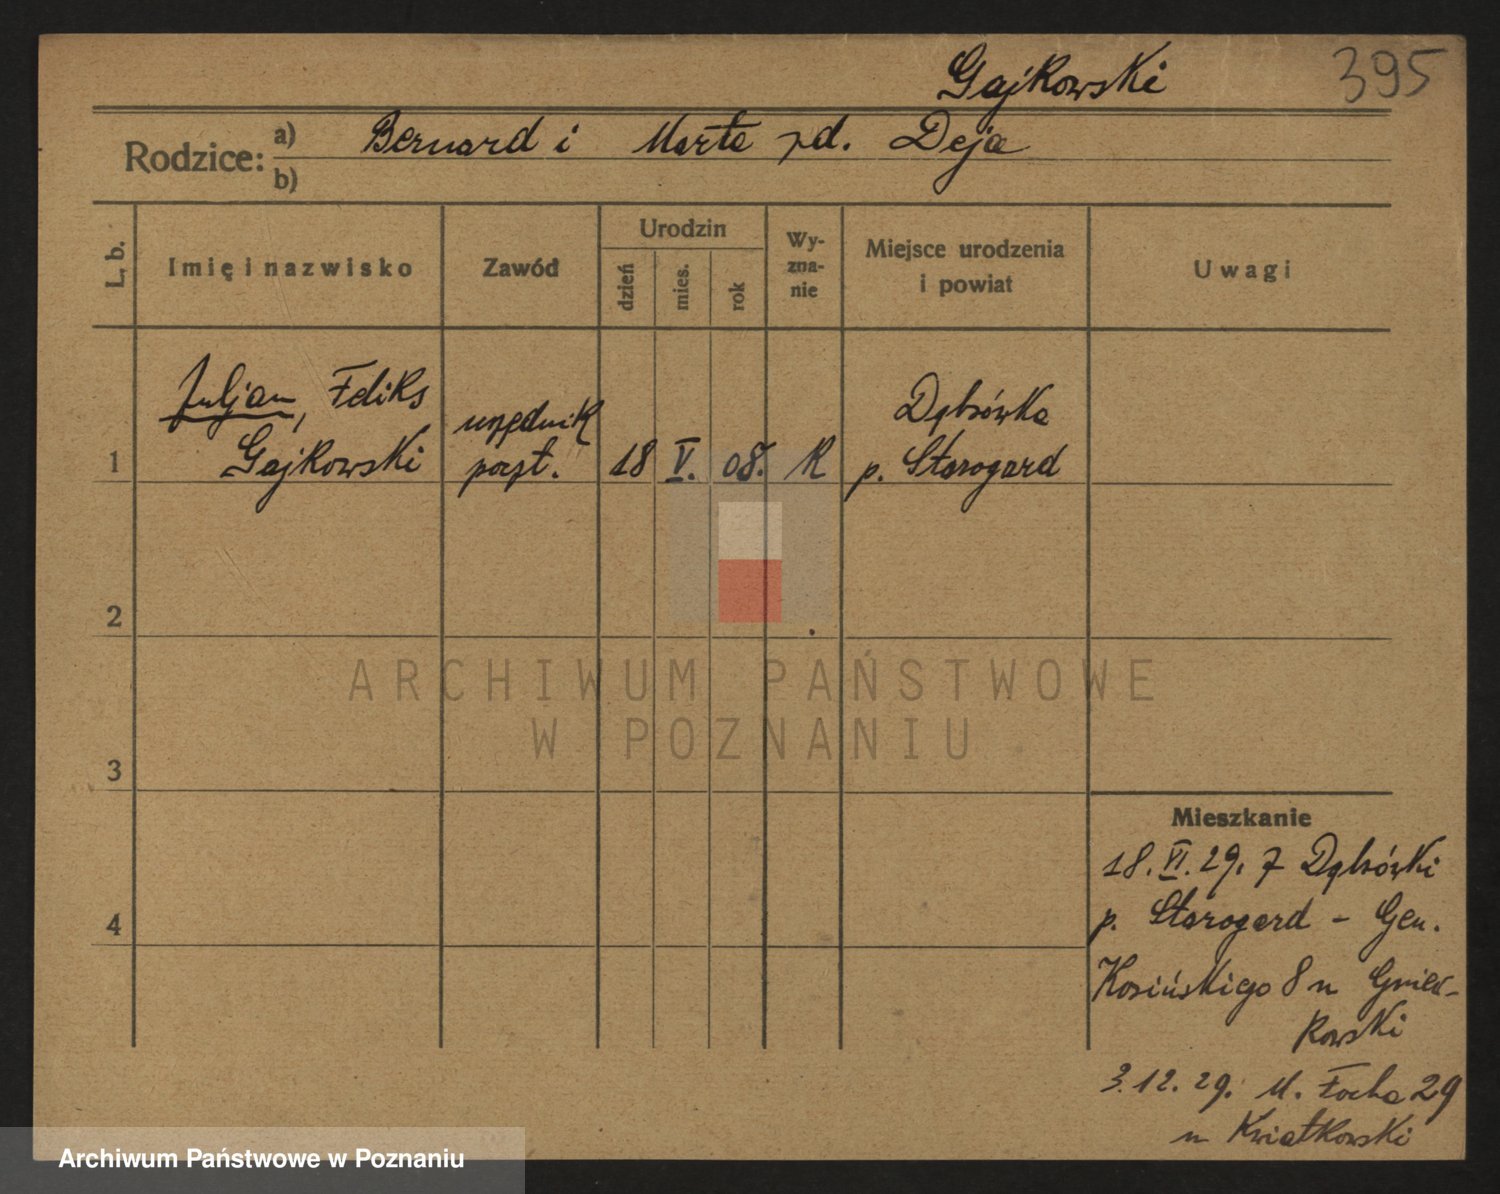 Gajkowski 395
Rodzice: a) Bernard i Marta zd. Deja
b)
L. b. Imię i nazwisko Zawód Urodzin dzień mies. rok Wyzna-nie Miejsce urodzenia i powiat Uwagi
Juljan, Feliks urzędnik Dąbrówka
1 Gajkowski poczt. 18 V. 08. R p. Starogard
2
ARCHIWUM PAŃSTWOWE
W POZNANIU
3
Mieszkanie
18. VI. 29. z Dąbrówki
4 p. Starogard - Gen.
Kosińskiego 8 u Gniew-
kowski
3. 12. 29. M. Focha 29
u Kwiatkowski
Archiwum Państwowe w Poznaniu